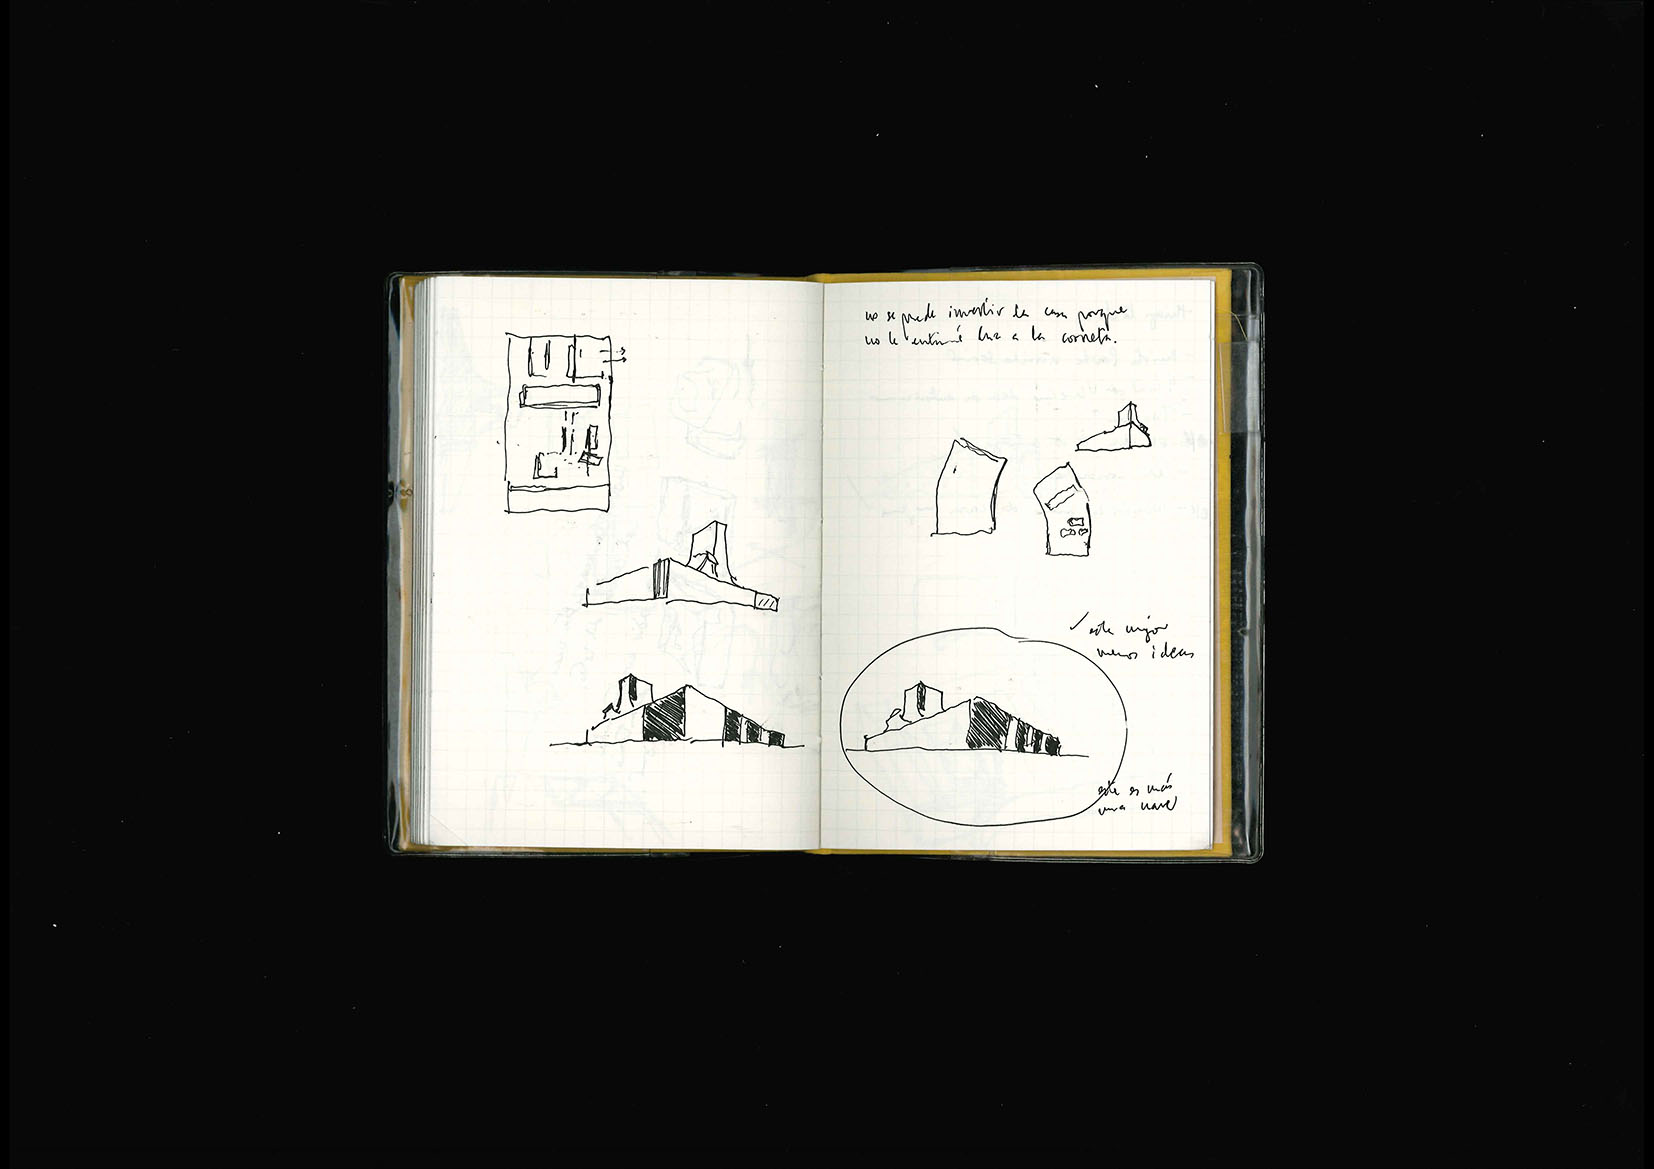 no se puede invertir la casa porque
no le entra luz a la
este mejor
menos ideas
este es más
una nave